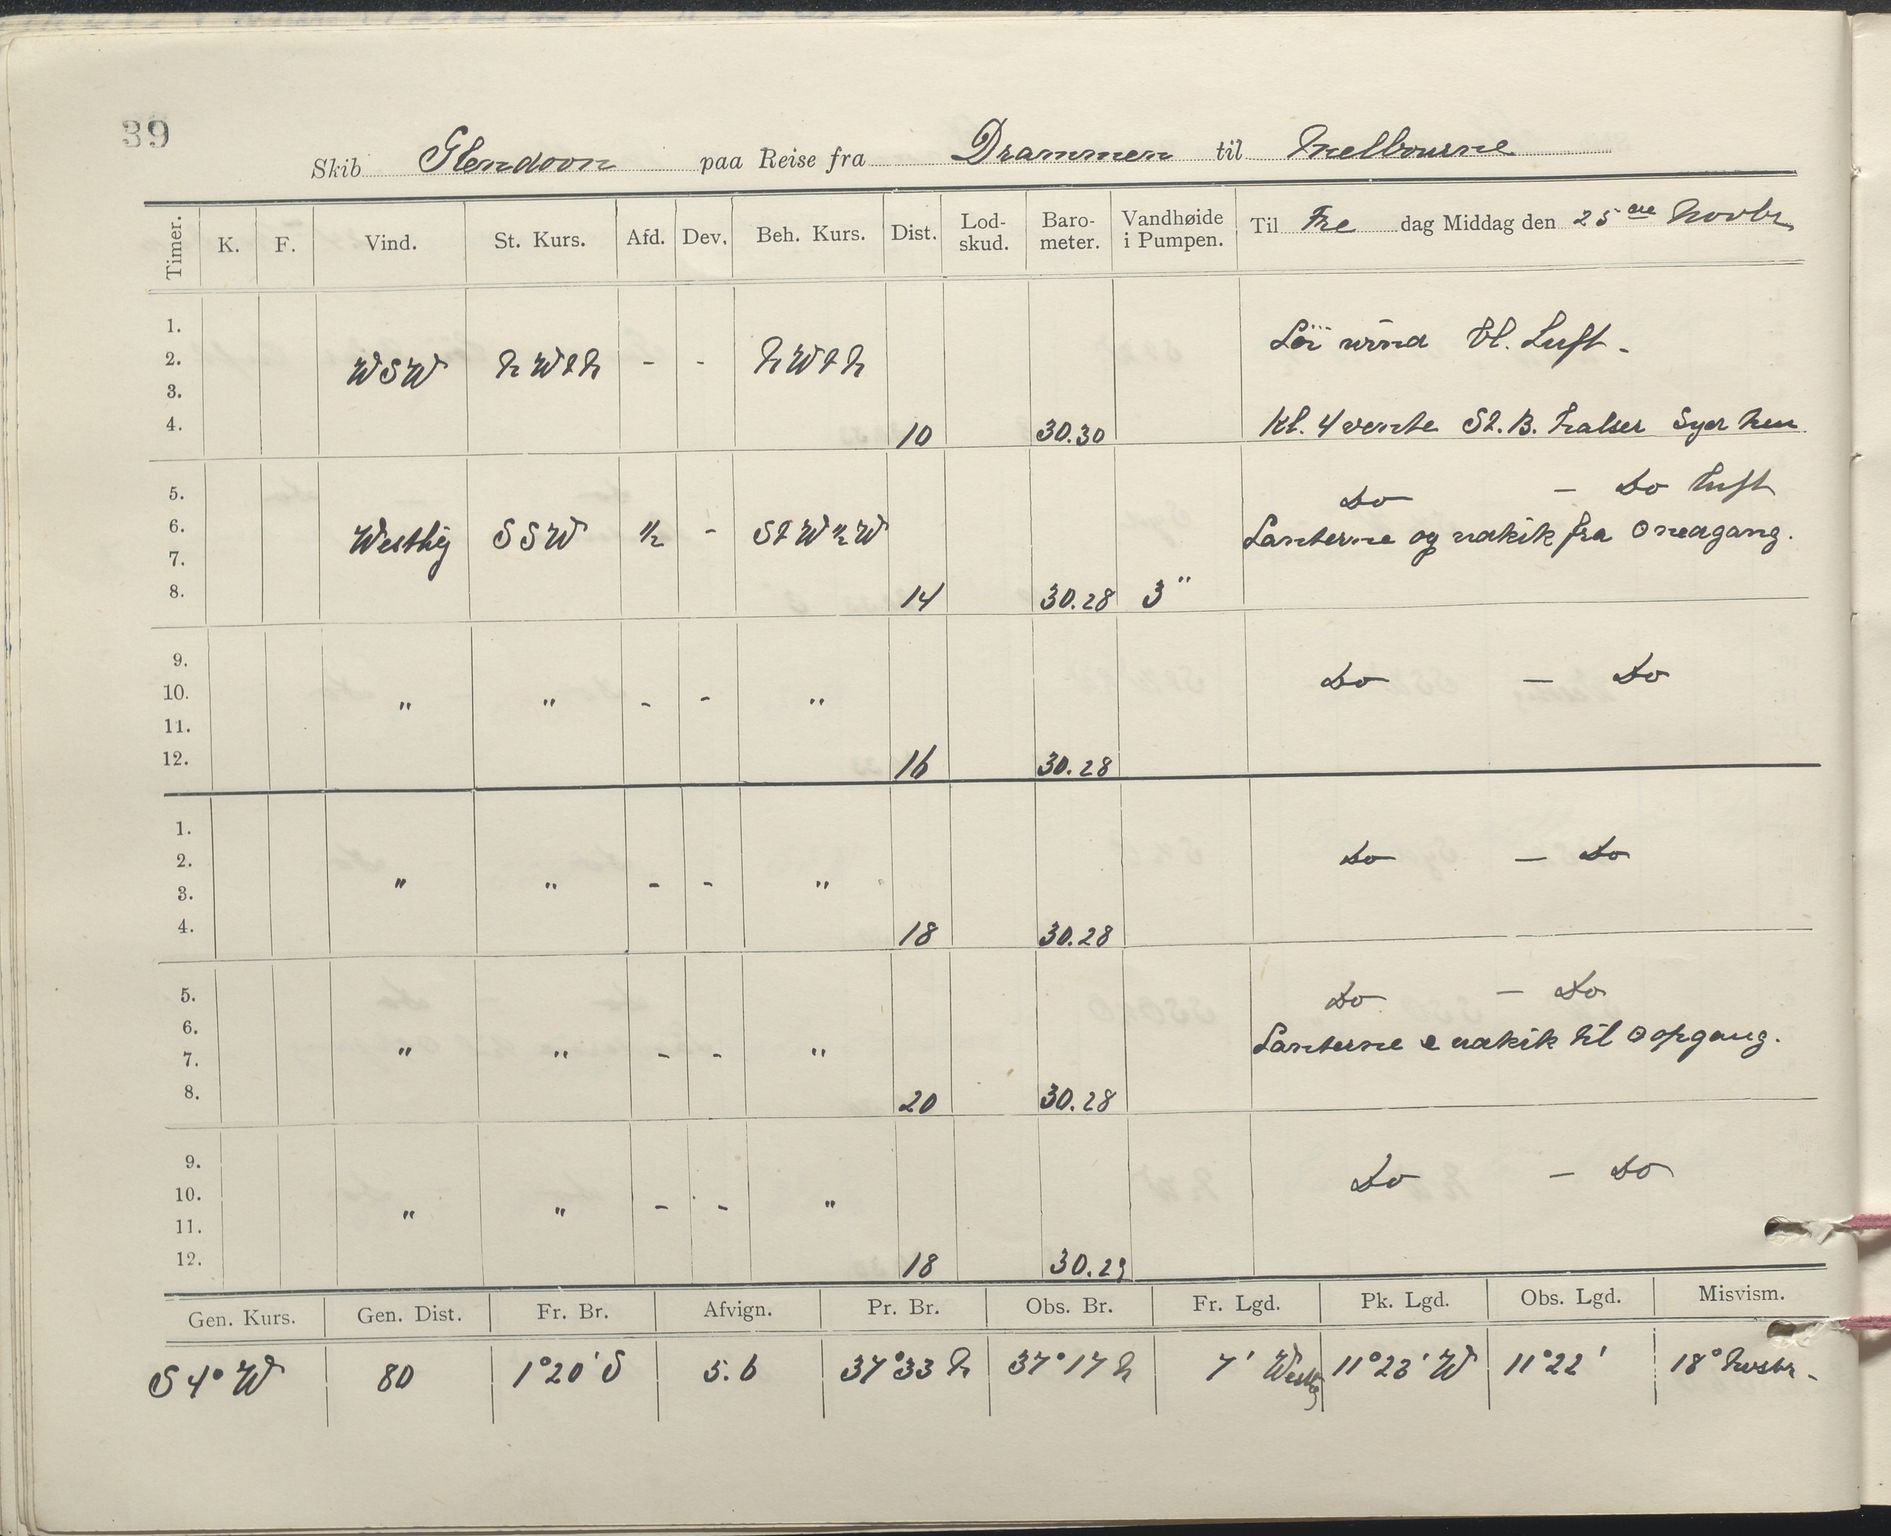 39
Skib Glendoon paa Reise fra Drammen til Melbourne
Timer. K. F. Vind. St. Kurs. Afd. Dev. Beh. Kurs. Dist. Lod-skud. Baro-meter. Vandhøide i Pumpen. Til Fre dag Middag den 25de Novbr
1. Löi vind Bl. Luft -
2. WSW NWtN - - NWtN
3.
4. 10 30.30 Kl. 4 vendte St. B. halser Syer hen
5. Do - Do Luft
6. Westlig SSW 1/2 - StW 1/2 W Lanterne og udkik fra O nedgang.
7.
8. 14 30.28 3"
9.
10. " " - - " Do - Do
11.
12. 16 30.28
1.
2. Do - Do
3. " " - - "
4. 18 30.28
5. Do - Do
6. Lanterne e udkik til O opgang.
7. " " - - "
8. 20 30.28
9.
10. " " - - " Do - Do
11.
12. 18 30.29
Gen. Kurs. Gen. Dist. Fr. Br. Afvign. Pr. Br. Obs. Br. Fr. Lgd. Pk. Lgd. Obs. Lgd. Misvism.
S 4° W 80 1°20' S 5.6 37°33 N 37°17 N 7' Westlig 11°23' W 11°22' 18°